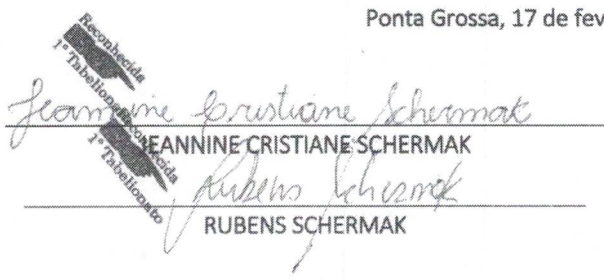 Ponta Grossa, 17 de fev
Reconhecida
1º Tabelionato
Jeannine Cristiane Schermak
JEANNINE CRISTIANE SCHERMAK
Reconhecida
1º Tabelionato
Rubens Schermak
RUBENS SCHERMAK